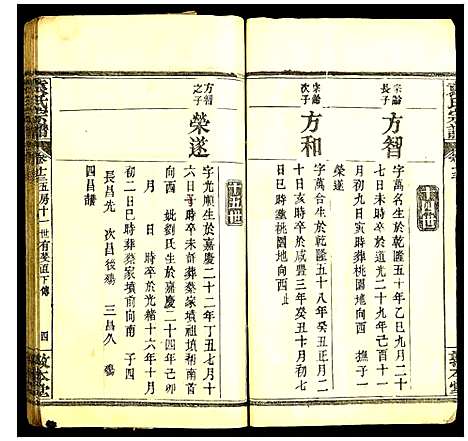 宗譜
宗論
長子
方智
字萬名生於乾隆五十年乙巳九月二十
七日未時卒於道光二十九年己酉十一
月初九日寅時葬桃園地向西 撫子一
榮遂
宗論
次子
方和
字萬合生於乾隆五十八年癸丑正月二
十日亥時卒於咸豐三年癸丑十月初七
日丑時葬桃園地向西
方智
之子
榮遂
字光順生於嘉慶二十二年丁丑七月十
六日子時卒未詳葬蔡家墳祖墳南
向西 妣劉氏生於嘉慶二十四年己卯
月 日 時卒於光緒十六年十月
初二日巳時葬蔡家墳前向南 子四
長昌先 次昌後殤 三昌久殤
四昌譜
宗譜
卷十三五房十一世有斐直下傳
四
敦本堂